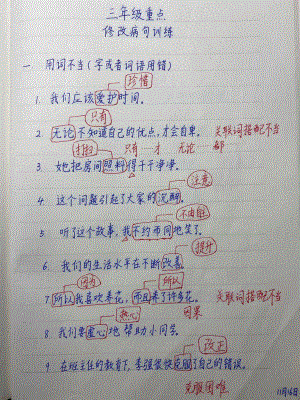 三年级重点
修改病句训练
一 用词不当(字或者词语用错)
珍惜
1. 我们应该爱护时间。
只有
2. 无论不知道自己的优点,才会自卑。 关联词搭配不当
打扫 只有 才 无论 都
3. 她把房间照料得干干净净。
注意
4. 这个问题引起了大家的沉醉。
不由自主
5. 听了这个故事,我不约而同地笑了。
提升
6. 我们的生活水平在不断改善。
因为 所以
7. 所以我喜欢养花,而且养了许多花。 关联词搭配不当
热心 因果
8. 我们要虚心地帮助小同学。
改正
9. 在班主任的教育下,李强很快克服了自己的错误。
克服困难
11月16日